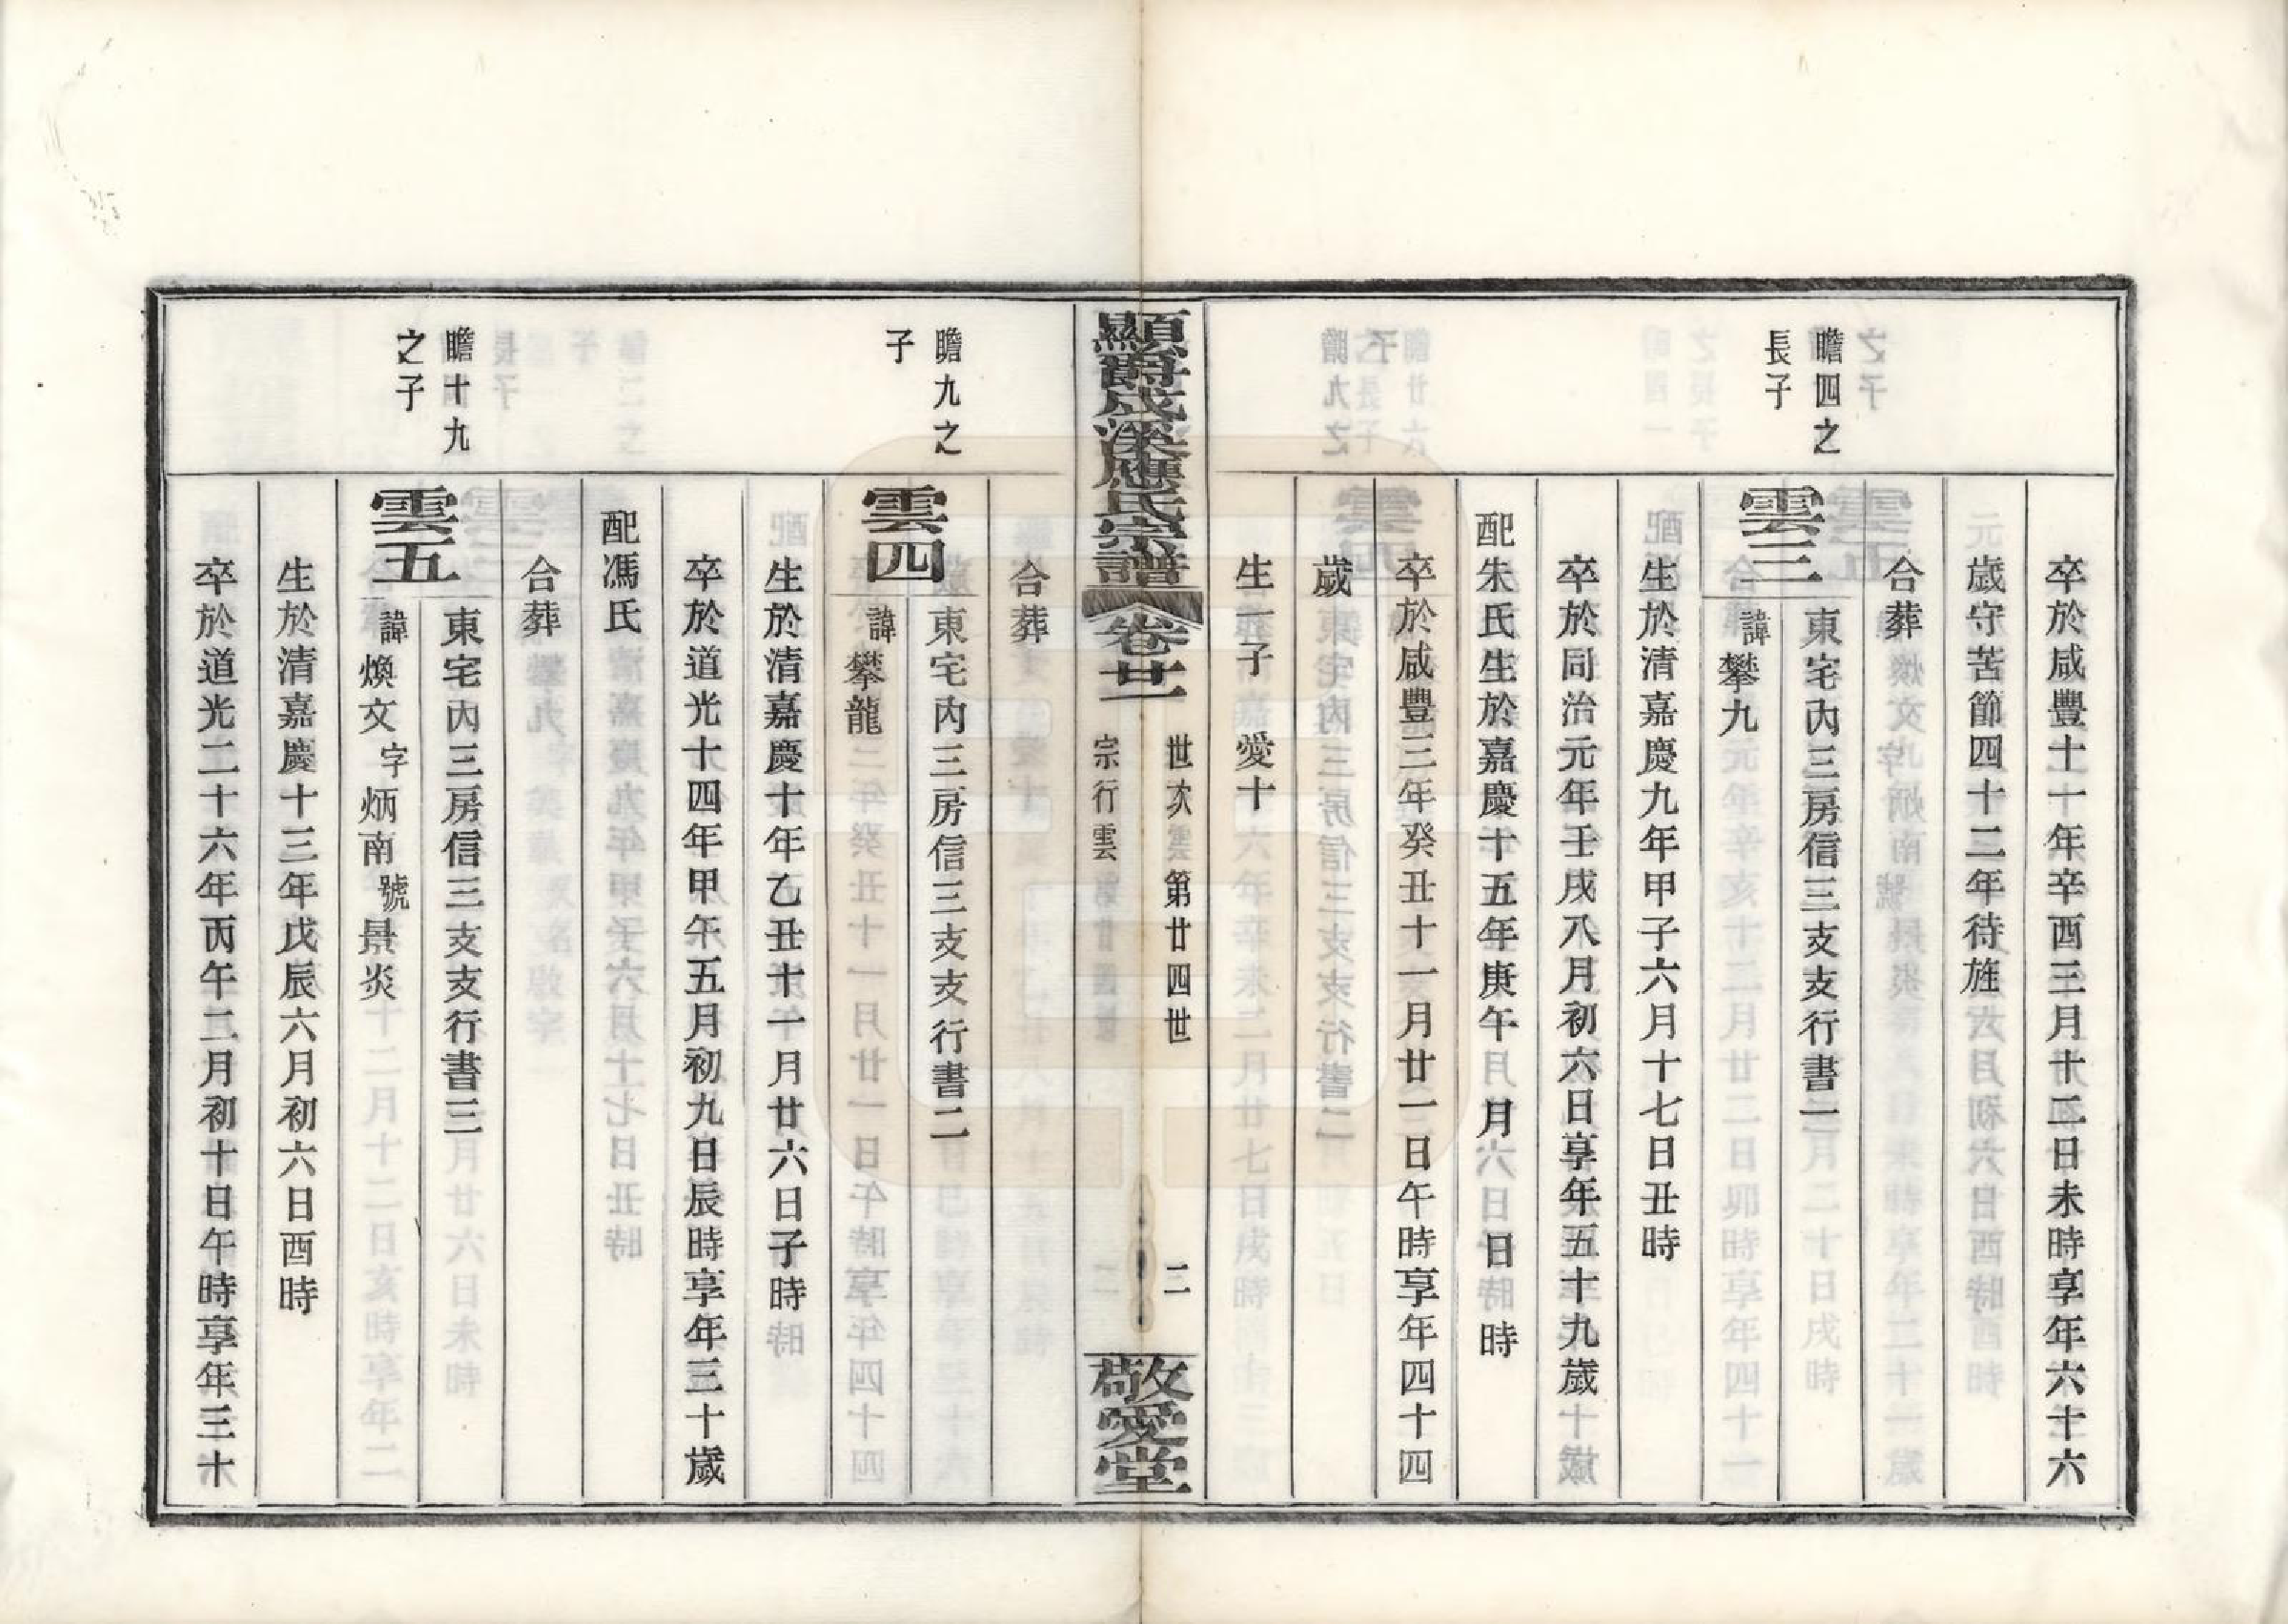 卒於咸豐十一年辛酉三月十二日未時享年六十六
歲守苦節四十二年待旌
合葬
瞻四之
長子
雲三
東宅內三房信三支支行書一
諱攀九
生於清嘉慶九年甲子六月十七日丑時
卒於同治元年壬戌八月初六日享年五十九歲
配朱氏生於嘉慶十五年庚午 月 日 時
卒於咸豐三年癸丑十一月廿一日午時享年四十四
歲
生一子 愛十
顯爵成溪應氏宗譜
卷廿一
世次 第廿四世
宗行雲
二
敬愛堂
合葬
瞻九之
子
雲四
東宅內三房信三支支行書二
諱攀龍
生於清嘉慶十年乙丑十一月廿六日子時
卒於道光十四年甲午五月初九日辰時享年三十歲
配馮氏
合葬
瞻十九
之子
雲五
東宅內三房信三支支行書三
諱煥文 字炳南 號景炎
生於清嘉慶十三年戊辰六月初六日酉時
卒於道光二十六年丙午二月初十日午時享年三十